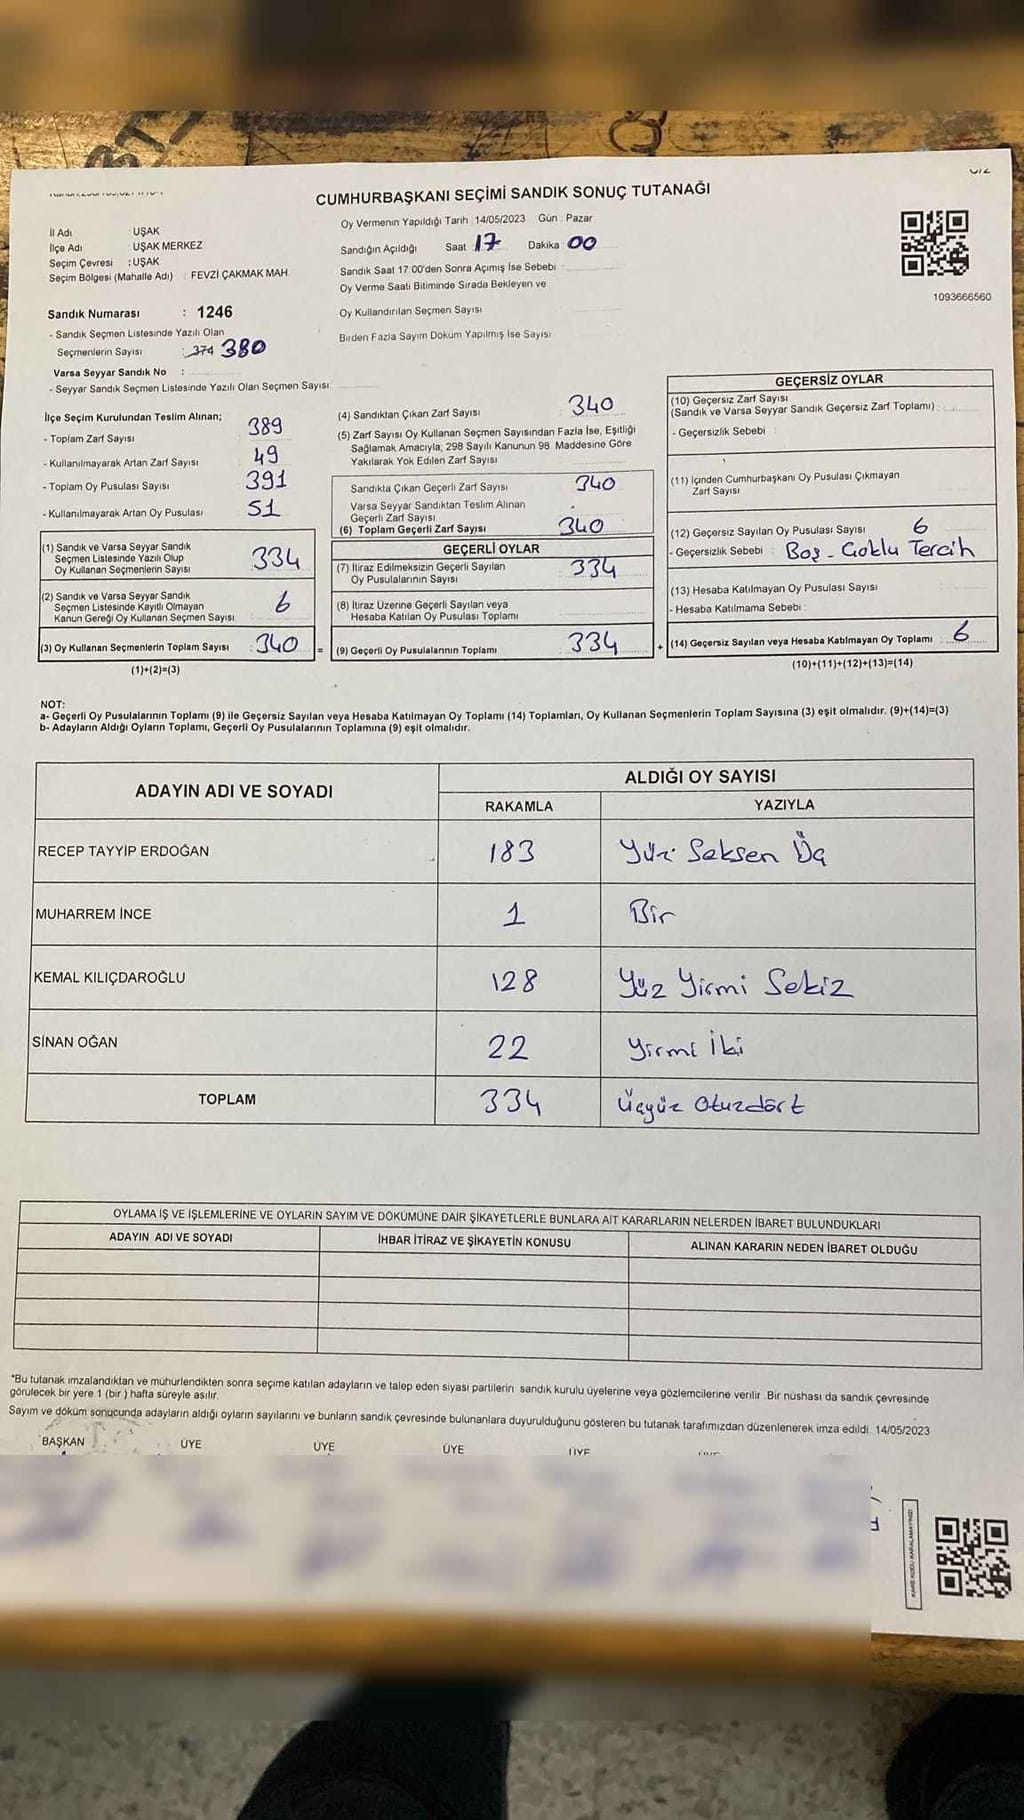 CUMHURBAŞKANI SEÇİMİ SANDIK SONUÇ TUTANAĞI
Oy Vermenin Yapıldığı Tarih : 14/05/2023 Gün : Pazar
İl Adı : UŞAK
İlçe Adı : UŞAK MERKEZ
Seçim Çevresi : UŞAK
Seçim Bölgesi (Mahalle Adı) : FEVZİ ÇAKMAK MAH.
Sandığın Açıldığı Saat 17 Dakika 00
Sandık Saat 17:00'den Sonra Açımış İse Sebebi :
Oy Verme Saati Bitiminde Sırada Bekleyen ve
Oy Kullandırılan Seçmen Sayısı
Birden Fazla Sayım Döküm Yapılmış İse Sayısı
1093666560
Sandık Numarası : 1246
- Sandık Seçmen Listesinde Yazılı Olan
Seçmenlerin Sayısı : 374 380
Varsa Seyyar Sandık No :
- Seyyar Sandık Seçmen Listesinde Yazılı Olan Seçmen Sayısı:
İlçe Seçim Kurulundan Teslim Alınan;
- Toplam Zarf Sayısı 389
- Kullanılmayarak Artan Zarf Sayısı 49
- Toplam Oy Pusulası Sayısı 391
- Kullanılmayarak Artan Oy Pusulası 51
(1) Sandık ve Varsa Seyyar Sandık
Seçmen Listesinde Yazılı Olup
Oy Kullanan Seçmenlerin Sayısı 334
(2) Sandık ve Varsa Seyyar Sandık
Seçmen Listesinde Kayıtlı Olmayan
Kanun Gereği Oy Kullanan Seçmen Sayısı 6
(3) Oy Kullanan Seçmenlerin Toplam Sayısı : 340 =
(1)+(2)=(3)
(4) Sandıktan Çıkan Zarf Sayısı 340
(5) Zarf Sayısı Oy Kullanan Seçmen Sayısından Fazla İse, Eşitliği
Sağlamak Amacıyla, 298 Sayılı Kanunun 98. Maddesine Göre
Yakılarak Yok Edilen Zarf Sayısı
Sandıkta Çıkan Geçerli Zarf Sayısı 340
Varsa Seyyar Sandıktan Teslim Alınan
Geçerli Zarf Sayısı
(6) Toplam Geçerli Zarf Sayısı 340
GEÇERLİ OYLAR
(7) İtiraz Edilmeksizin Geçerli Sayılan
Oy Pusulalarının Sayısı 334
(8) İtiraz Üzerine Geçerli Sayılan veya
Hesaba Katılan Oy Pusulası Toplamı
(9) Geçerli Oy Pusulalarının Toplamı 334 +
GEÇERSİZ OYLAR
(10) Geçersiz Zarf Sayısı
(Sandık ve Varsa Seyyar Sandık Geçersiz Zarf Toplamı) :
- Geçersizlik Sebebi :
(11) İçinden Cumhurbaşkanı Oy Pusulası Çıkmayan
Zarf Sayısı
(12) Geçersiz Sayılan Oy Pusulası Sayısı 6
- Geçersizlik Sebebi : Boş - Çoklu Tercih
(13) Hesaba Katılmayan Oy Pusulası Sayısı
- Hesaba Katılmama Sebebi :
(14) Geçersiz Sayılan veya Hesaba Katılmayan Oy Toplamı : 6
(10)+(11)+(12)+(13)=(14)
NOT:
a- Geçerli Oy Pusulalarının Toplamı (9) ile Geçersiz Sayılan veya Hesaba Katılmayan Oy Toplamı (14) Toplamları, Oy Kullanan Seçmenlerin Toplam Sayısına (3) eşit olmalıdır. (9)+(14)=(3)
b- Adayların Aldığı Oyların Toplamı, Geçerli Oy Pusulalarının Toplamına (9) eşit olmalıdır.
ADAYIN ADI VE SOYADI ALDIĞI OY SAYISI
RAKAMLA YAZIYLA
RECEP TAYYİP ERDOĞAN 183 Yüz Seksen Üç
MUHARREM İNCE 1 Bir
KEMAL KILIÇDAROĞLU 128 Yüz Yirmi Sekiz
SİNAN OĞAN 22 Yirmi İki
TOPLAM 334 Üçyüz Otuzdört
OYLAMA İŞ VE İŞLEMLERİNE VE OYLARIN SAYIM VE DÖKÜMÜNE DAİR ŞİKAYETLERLE BUNLARA AİT KARARLARIN NELERDEN İBARET BULUNDUKLARI
ADAYIN ADI VE SOYADI İHBAR İTİRAZ VE ŞİKAYETİN KONUSU ALINAN KARARIN NEDEN İBARET OLDUĞU
*Bu tutanak imzalandıktan ve mühürlendikten sonra seçime katılan adayların ve talep eden siyasi partilerin sandık kurulu üyelerine veya gözlemcilerine verilir. Bir nüshası da sandık çevresinde
görülecek bir yere 1 (bir) hafta süreyle asılır.
Sayım ve döküm sonucunda adayların aldığı oyların sayılarını ve bunların sandık çevresinde bulunanlara duyurulduğunu gösteren bu tutanak tarafımızdan düzenlenerek imza edildi. 14/05/2023
BAŞKAN ÜYE ÜYE ÜYE ÜYE
KARE KODU KARALAMAYINIZ!